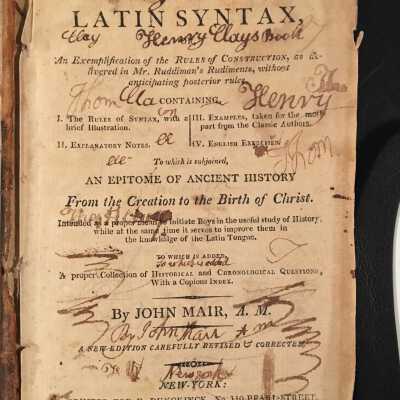 LATIN SYNTAX,
Clay Henry Clays Book
An Exemplification of the RULES of CONSTRUCTION, as de-
livered in Mr. Ruddiman's Rudiments, without
anticipating posterior rules,
Thom Cla CONTAINING, Henry
I. The RULES of SYNTAX, with a
brief Illustration.
II. EXPLANATORY NOTES.
III. EXAMPLES, taken for the most
part from the Classic Authors.
IV. ENGLISH EXERCISES
Thom
To which is subjoined,
AN EPITOME OF ANCIENT HISTORY
From the Creation to the Birth of Christ.
Intended as a proper means to initiate Boys in the useful study of History
while at the same time it serves to improve them in
the knowledge of the Latin Tongue.
TO WHICH IS ADDED
To which is added
A proper Collection of HISTORICAL and CHRONOLOGICAL QUESTIONS,
With a Copious INDEX.
By JOHN MAIR, A. M.
By John Mair A m
A NEW EDITION CAREFULLY REVISED & CORRECTED
New york
NEW-YORK: